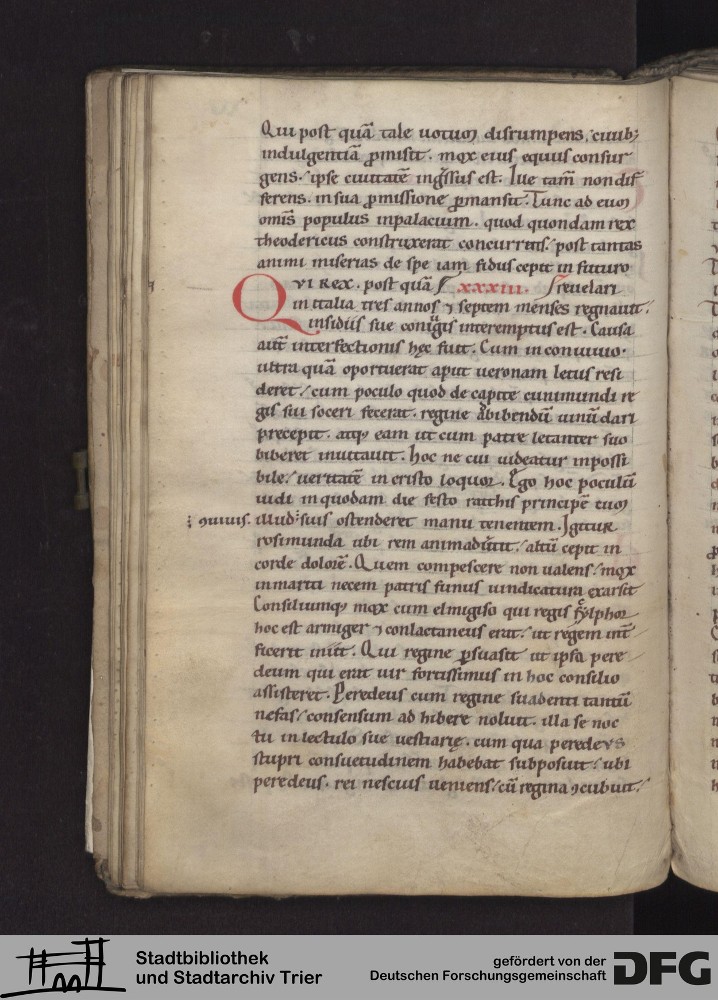 Qui post quā tale uotum disrumpens. ciuib;
indulgentiā ꝓmisit. mox eius equus consur
gens. ipse ciuitatē ingssus est. Iue tam̄ non dif
ferens. in sua ꝓmissione ꝑmansit. Tunc ad eum
omīs populus inpalacium. quod quondam rex
theodericus construxerat concurrens. post tantas
animi miserias de spe iam fidus cepit in futuro
QVI REX. post quā xxxiii. revelari
in italia tres annos ⁊ septem menses regnauit.
insidiis sue coniugis interemptus est. Causa
aut̄ interfectionis hęc fuit. Cum in conuiuio.
ultra quā oportuerat aput ueronam letus resi
deret. cum poculo quod de capite cunimundi re
gis sui soceri fecerat. regine adbibendū uinū dari
precepit. atq; eam ut cum patre letanter suo
biberet inuitauit. Hoc ne cui uideatur inpossi
bile. ueritatē in cristo loquor. Ego hoc poculū
uidi in quodam die festo ratchis principē cum
ꝯuiuis. illud suis ostenderet manu tenentem. Igitur
rosimunda ubi rem animaduertit. altū cepit in
corde dolorē. Quem compescere non ualens. mox
in mariti necem patris funus uindicatura exarsit
Consiliumq; mox cum elmigiso qui regis scylphor
hoc est armiger ⁊ conlactaneus erat. ut regem int̄
ficerit iniit. Qui regine ꝑsuasit ut ipsa pere
deum qui erat uir fortissimus in hoc consilio
assisteret. Peredeus cum regine suadenti tantū
nefas. consensum ad hibere noluit. illa se noc
tu in lectulo sue uestiarię. cum qua peredeus
stupri consuetudinem habebat subposuit. ubi
peredeus. rei nescius ueniens. cū regina ꝯcubuit.
Stadtbibliothek
und Stadtarchiv Trier
gefördert von der
Deutschen Forschungsgemeinschaft
DFG